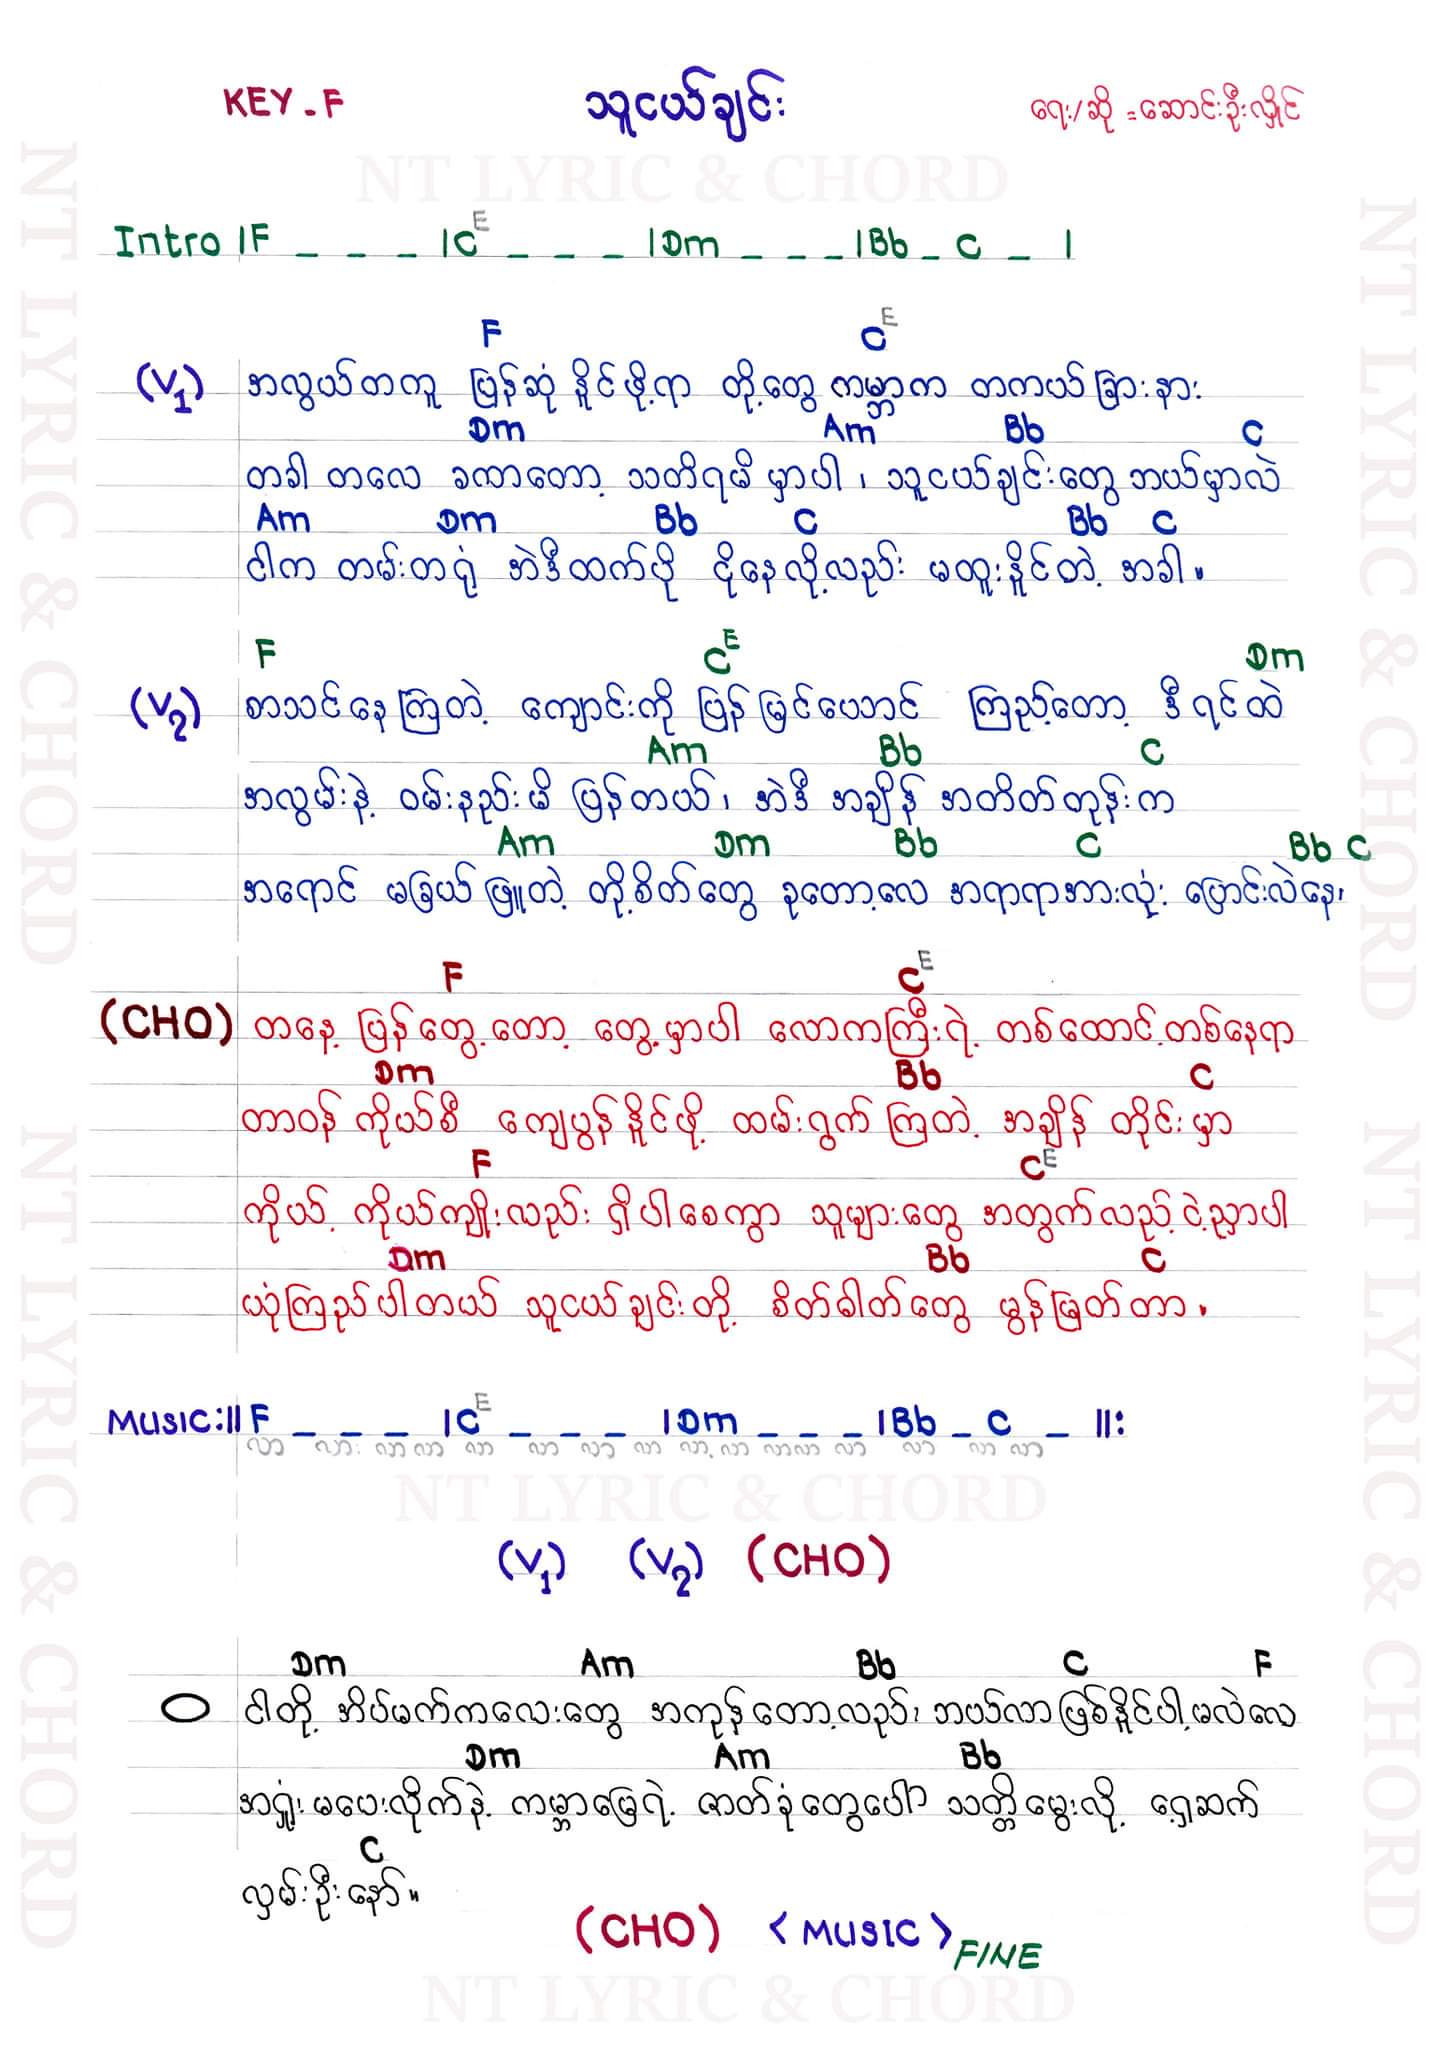 KEY - F သူငယ်ချင်း ရေး/ဆို = ဆောင်းဦးလှိုင်
NT LYRIC & CHORD
Intro |F _ _ _ |C E _ _ _ |Dm _ _ _ |Bb _ C _ |
F C E
(V1) အလွယ်တကူ ပြန်ဆုံ နိူင်ဖို့ရာ တို့တွေ ကမ္ဘာက တကယ်ခြားနား
Dm Am Bb C
တခါ တလေ ခဏတော့ သတိရမိ မှာပါ ၊ သူငယ်ချင်းတွေ ဘယ်မှာလဲ
Am Dm Bb C Bb C
ငါက တမ်းတရုံ အဲဒီထက်ပို ငိုနေလို့လည်း မထူးနိူင်တဲ့ အခါ ။
F C E Dm
(V2) စာသင်နေကြတဲ့ ကျောင်းကို ပြန်မြင်ယောင် ကြည့်တော့ ဒီရင်ထဲ
Am Bb C
အလွမ်းနဲ့ ဝမ်းနည်းမိ ပြန်တယ် ၊ အဲဒီ အချိန် အတိတ်တုန်းက
Am Dm Bb C Bb C
အရောင် မခြယ်ဖြူတဲ့ တို့စိတ်တွေ ခုတော့လေ အရာရာအားလုံး ပြောင်းလဲနေ၊
F C E
(CHO) တနေ့ ပြန်တွေ့တော့ တွေ့မှာပါ လောကကြီးရဲ့ တစ်ထောင့်တစ်နေရာ
Dm Bb C
တာဝန် ကိုယ်စီ ကျေပွန်နိူင်ဖို့ ထမ်းရွက်ကြတဲ့ အချိန် တိုင်းမှာ
F C E
ကိုယ့် ကိုယ်ကျိုးလည်း ရှိပါစေကွာ သူများတွေ အတွက်လည့် ငဲ့ညှာပါ
Dm Bb C
ယုံကြည်ပါတယ် သူငယ်ချင်းတို့ စိတ်ဓါတ်တွေ မွန်မြတ်တာ ။
MUSIC:|| F _ _ _ |C E _ _ _ |Dm _ _ _ |Bb _ C _ ||:
လာ လား လာ လာ လာ လာ လာ လာ လာ့ လာ လာလာ လာ လာ လာ လာ
NT LYRIC & CHORD
(V1) (V2) (CHO)
Dm Am Bb C F
ငါတို့ အိပ်မက်ကလေးတွေ အကုန်တော့လည်း ဘယ်လာဖြစ်နိူင်ပါ့မလဲလေ
Dm Am Bb
အရှုံးမပေးလိုက်နဲ့ ကမ္ဘာမြေရဲ့ ဇာတ်ခုံတွေပေါ် သတ္တိမွေးလို့ ရှေ့ဆက်
C
လှမ်းဦးနော် ။
(CHO) <MUSIC> FINE
NT LYRIC & CHORD
NT LYRIC & CHORD
NT LYRIC & CHORD
NT LYRIC & CHORD
NT LYRIC & CHORD